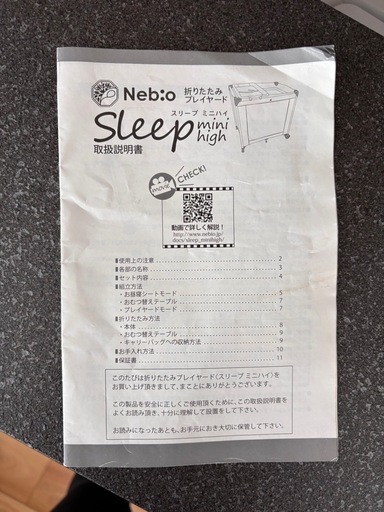 Neb:o 折りたたみ
プレイヤード
スリープ ミニハイ
Sleep mini high
取扱説明書
movie
CHECK!
動画で詳しく解説！
http://www.nebio.jp/
docs/sleep_minihigh/
使用上の注意 2
各部の名称 3
セット内容 4
組立方法
・お昼寝シートモード 5
・おむつ替えテーブル 7
・プレイヤードモード 7
折りたたみ方法
・本体 8
・おむつ替えテーブル 9
・キャリーバッグへの収納方法 9
お手入れ方法 10
保証書 11
このたびは折りたたみプレイヤード〈スリープ ミニハイ〉を
お買い上げ頂きまして、まことにありがとうございます。
この製品を安全に正しくご使用頂くために、この取扱説明書を
よくお読み頂き、十分に理解して設置をして下さい。
お読みになったあとも、お手元におき大切に保管して下さい。